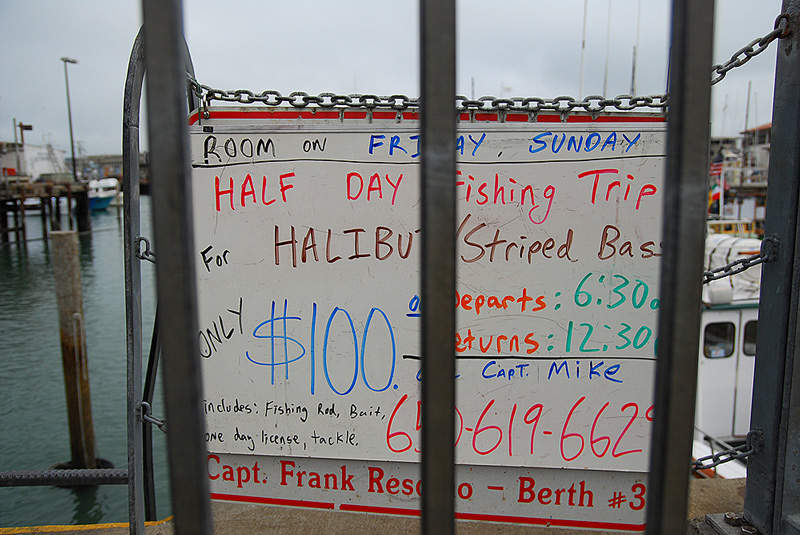 ROOM ON FRIDAY, SUNDAY
HALF DAY Fishing Trip
For HALIBUT/Striped Bass
ONLY $100.
Departs: 6:30a
Returns: 12:30
CAPT. MIKE
includes: Fishing Rod, Bait,
one day license, tackle.
650-619-6629
Capt. Frank Res o - Berth #3